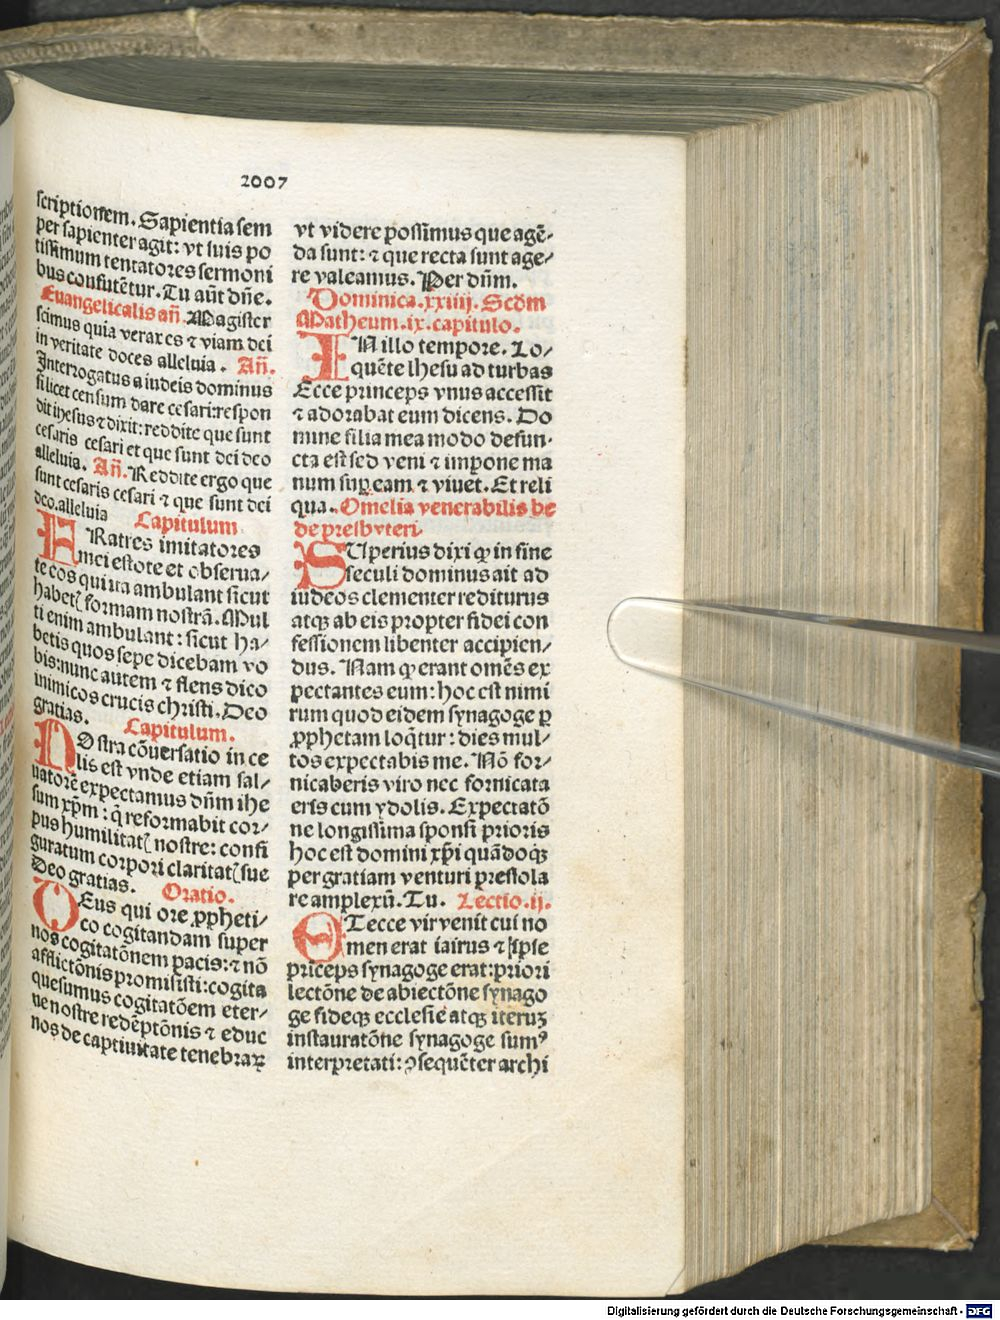 2007
scriptionem. Sapientia sem
per sapienter agit: vt suis po
tissimum tentatores sermoni
bus confutẽtur. Tu aũt dñe.
Euangelicalis añ. Magister
scimus quia verax es ⁊ viam dei
in veritate doces alleluia. Añ.
Interrogatus a iudeis dominus
si licet censum dare cesari: respon
dit ihesus ⁊ dixit: reddite que sunt
cesaris cesari et que sunt dei deo
alleluia. Añ. Reddite ergo que
sunt cesaris cesari ⁊ que sunt dei
deo. alleluia Capitulum
FRatres imitatores
mei estote et obserua/
te eos qui ita ambulant sicut
habetꝭ formam nostrã. Mul
ti enim ambulant: sicut ha/
betis quos sepe dicebam vo
bis: nunc autem ⁊ flens dico
inimicos crucis christi. Deo
gratias. Capitulum.
NOstra cõuersatio in ce
lis est vnde etiam sal/
uatorẽ expectamus dñm ihe
sum xp̃m: q̃ reformabit cor/
pus humilitatꝭ nostre: confi
guratum corpori claritatꝭ sue
Deo gratias. Oratio.
DEus qui ore ꝓpheti/
co cogitandam super
nos cogitatõnem pacis: ⁊ nõ
afflictõnis promisisti: cogita
quesumus cogitatõem eter/
ne nostre redẽptõnis ⁊ educ
nos de captiuitate tenebraꝝ
vt videre possimus que agẽ/
da sunt: ⁊ que recta sunt age/
re valeamus. Per dñm.
Dominica. xxiiij. Scdm
Matheum. ix. capitulo.
IN illo tempore. Lo/
quẽte Ihesu ad turbas
Ecce princeps vnus accessit
⁊ adorabat eum dicens. Do
mine filia mea modo defun/
cta est sed veni ⁊ impone ma
num suꝑ eam ⁊ viuet. Et reli
qua. Omelia venerabilis be
de presbyteri
SUperius dixi ꝙ in fine
seculi dominus ait ad
iudeos clementer rediturus
atqꝫ ab eis propter fidei con
fessionem libenter accipien/
dus. Nam ꝙ erant omẽs ex
pectantes eum: hoc est nimi
rum quod eidem synagoge ꝑ
ꝓphetam loq̃tur: dies mul/
tos expectabis me. Nõ for/
nicaberis viro nec fornicata
eris cum ydolis. Expectatõ
ne longissima sponsi prioris
hoc est domini xp̃i quãdoqꝫ
per gratiam venturi prestola
re amplexũ. Tu. Lectio. ij.
ET ecce vir venit cui no
men erat iairus ⁊ ipse
priceps synagoge erat: priori
lectõne de abiectõne synago
ge fideqꝫ ecclesie atqꝫ iteruꝫ
instauratõne synagoge sumꝰ
interpretati: ꝯsequẽter archi
Digitalisierung gefördert durch die Deutsche Forschungsgemeinschaft - DFG